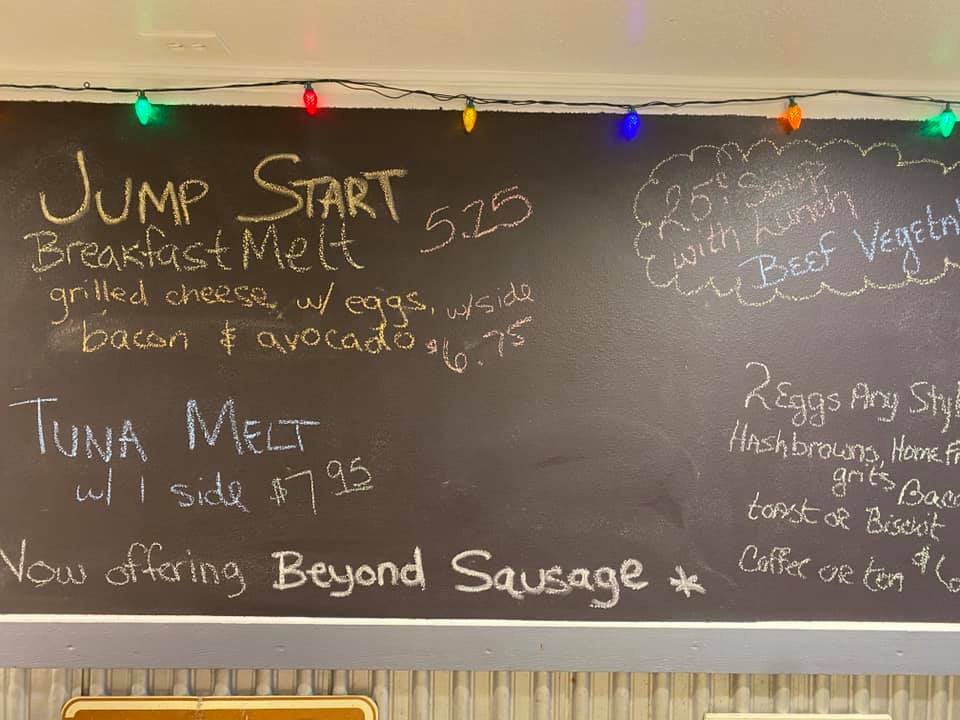 JUMP START
Breakfast Melt 5.25
grilled cheese w/ eggs, w/side
bacon & avocado $6.75
TUNA MELT
w/ 1 side $7.95
Now offering Beyond Sausage *
25¢ Soup
with Lunch
Beef
2 Eggs Any
Hashbrowns, Home
grits
toast or Biscuit
Coffee or tea